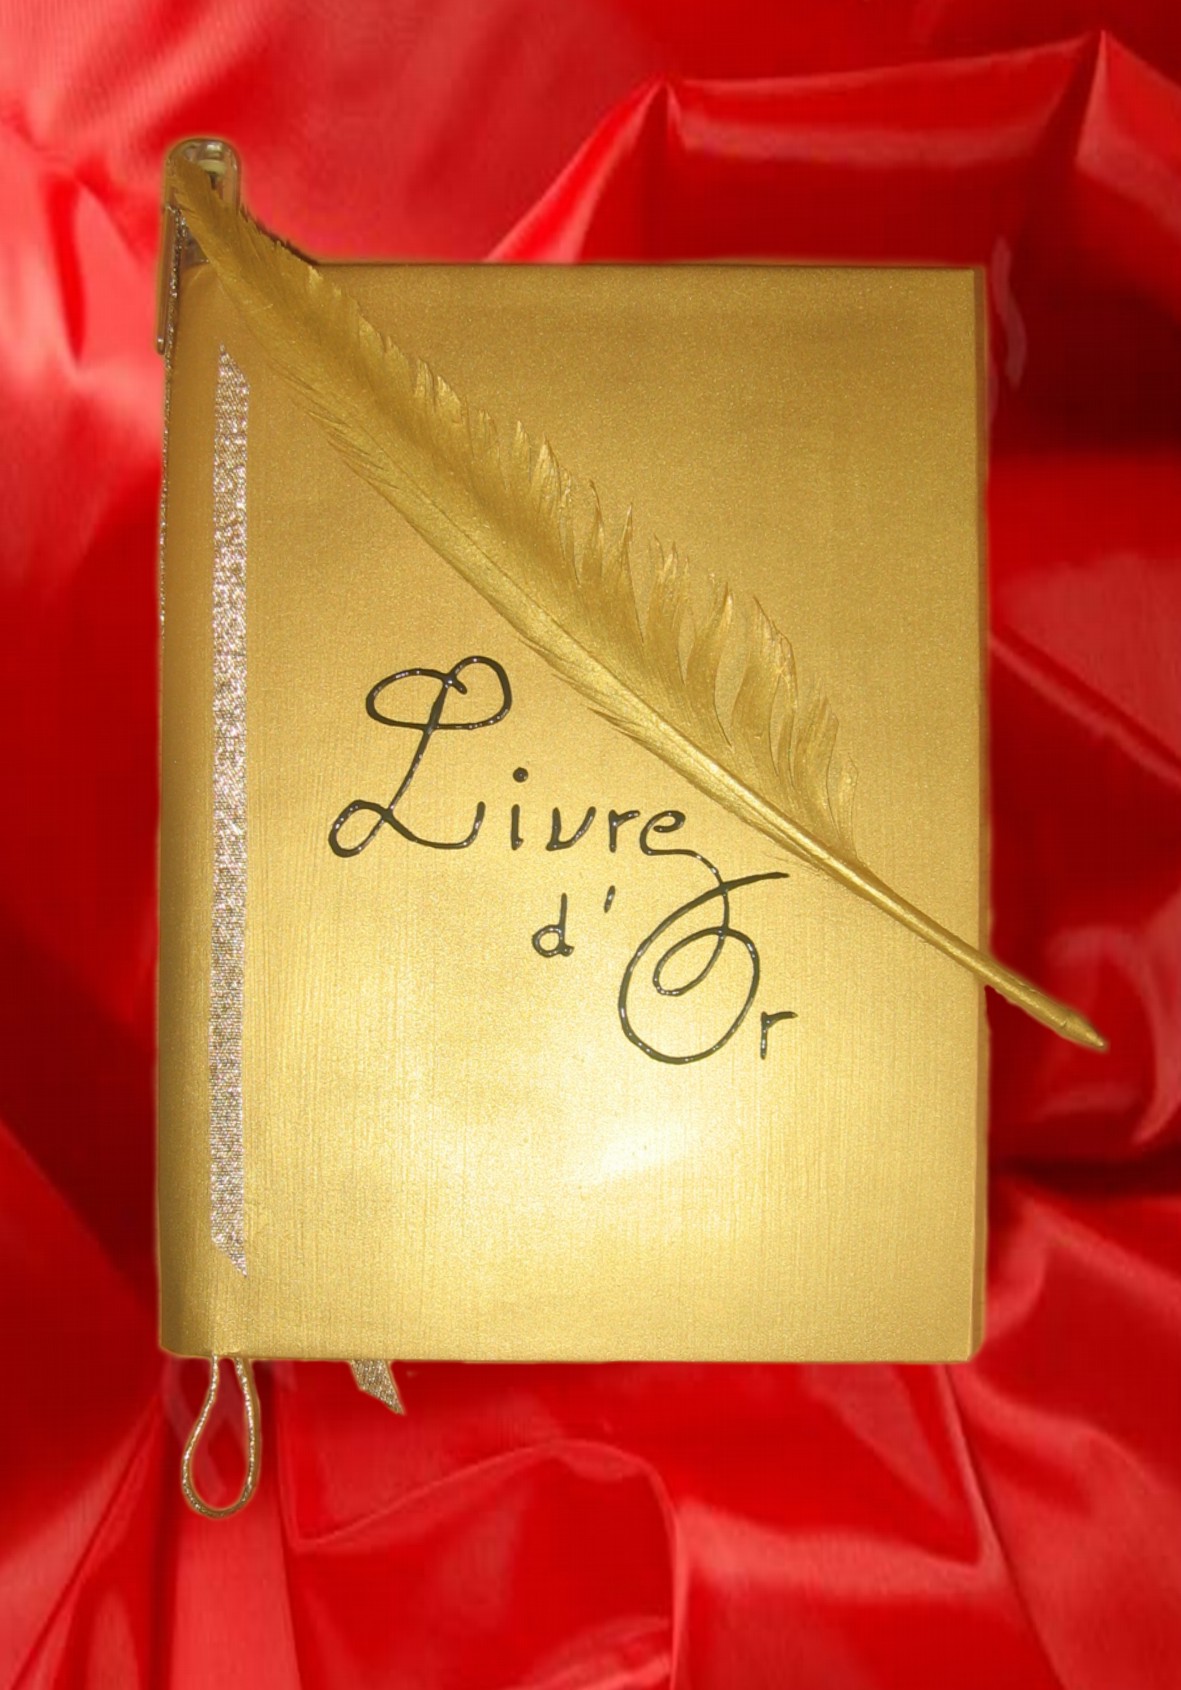 Livre
d'Or